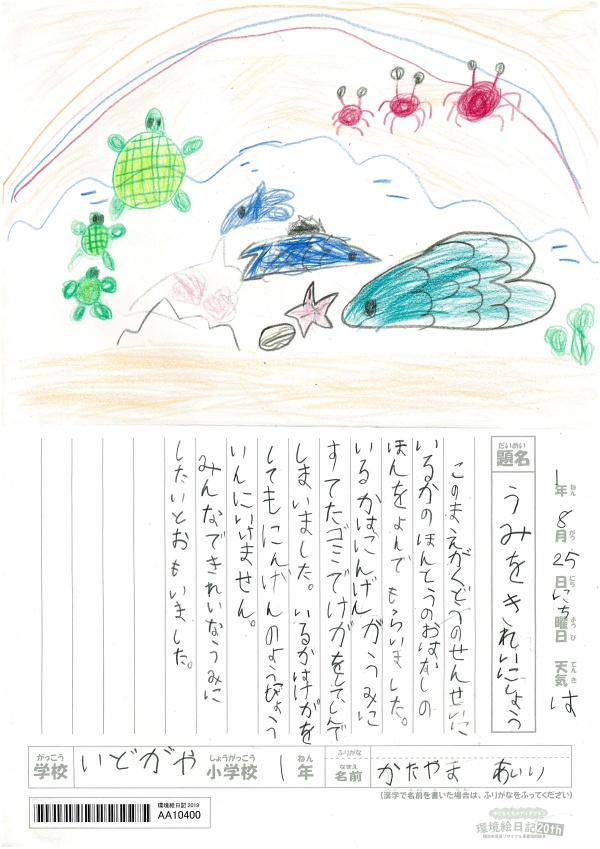 1年 8月 25日 にち曜日 天気 は
ねん がつ にち ようび てんき
だいめい
題名
うみをきれいにしよう
このまえがくどうのせんせいに
いるかのほんとうのおはなしの
ほんをよんでもらいました。
いるかはにんげんがうみに
すてたゴミでけがをしていんで
しまいました。いるかはけがを
してもにんげんのようびょう
いんにいけません。
みんなできれいなうみに
したいとおもいました。
がっこう
学校
いどがや
しょうがっこう
小学校
1
ねん
年
ふりがな
なまえ
名前
かたやま あいり
(漢字で名前を書いた場合は、ふりがなをふってください)
環境絵日記 2019
AA10400
環境絵日記 20th